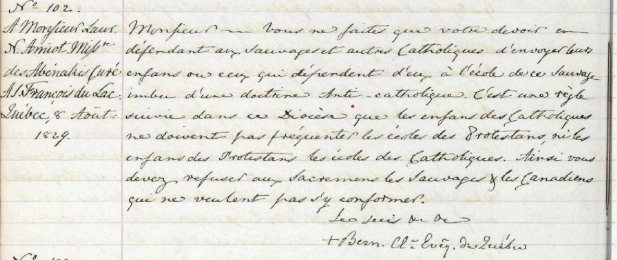 No. 102.
A Monsieur Laur.
N. Amiot, Miss.re
des Abenakis Curé
A St. François du Lac.
Québec, 8 Août
1829.
Monsieur — Vous ne faites que votre devoir en
défendant aux Sauvages et autres Catholiques d'envoyer leurs
enfans ou ceux qui dépendent d'eux à l'école de ce Sauvage
imbu d'une doctrine Anti-catholique. C'est une règle
suivie dans ce Diocèse que les enfans des Catholiques
ne doivent pas fréquenter les écoles des Protestans, ni les
enfans des Protestans les écoles des Catholiques. Ainsi vous
devez refuser aux Sacremens les Sauvages & les Canadiens
qui ne veulent pas s'y conformer.
Je suis &c &c
+ Bern. Cl. Evêq. de Québec